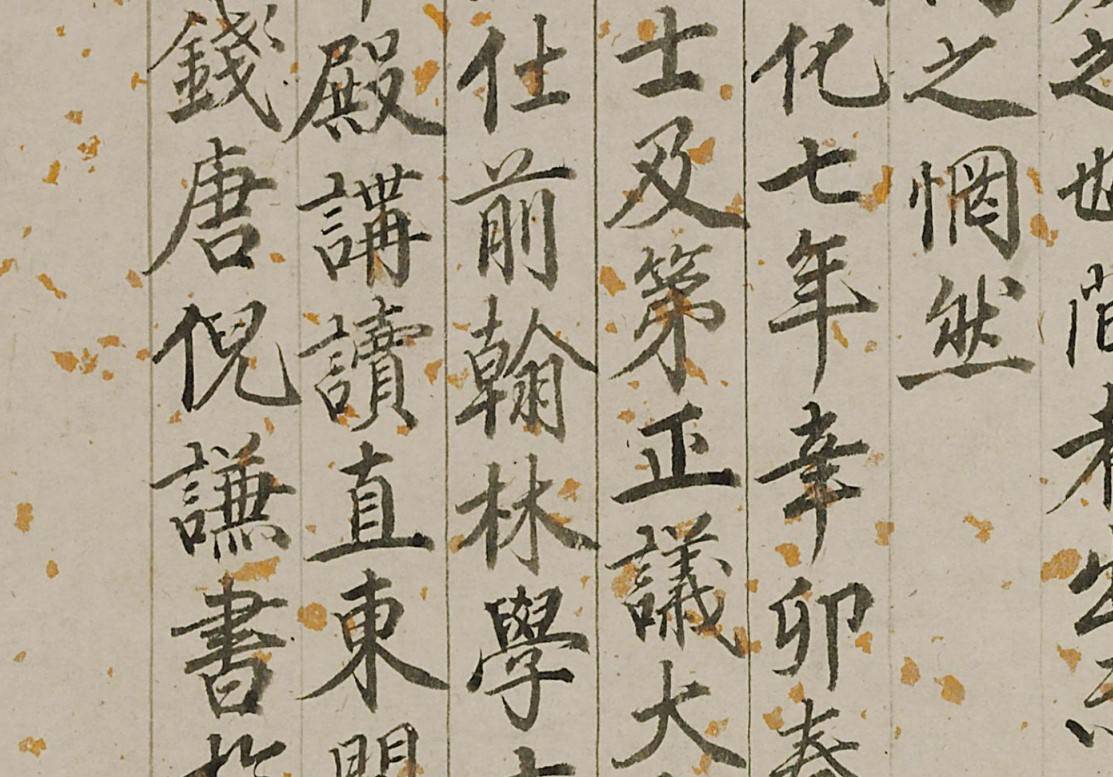 之也
之惘然
化七年辛卯春
士及第正議大
仕前翰林學士
殿講讀直東閣
錢唐倪謙書於